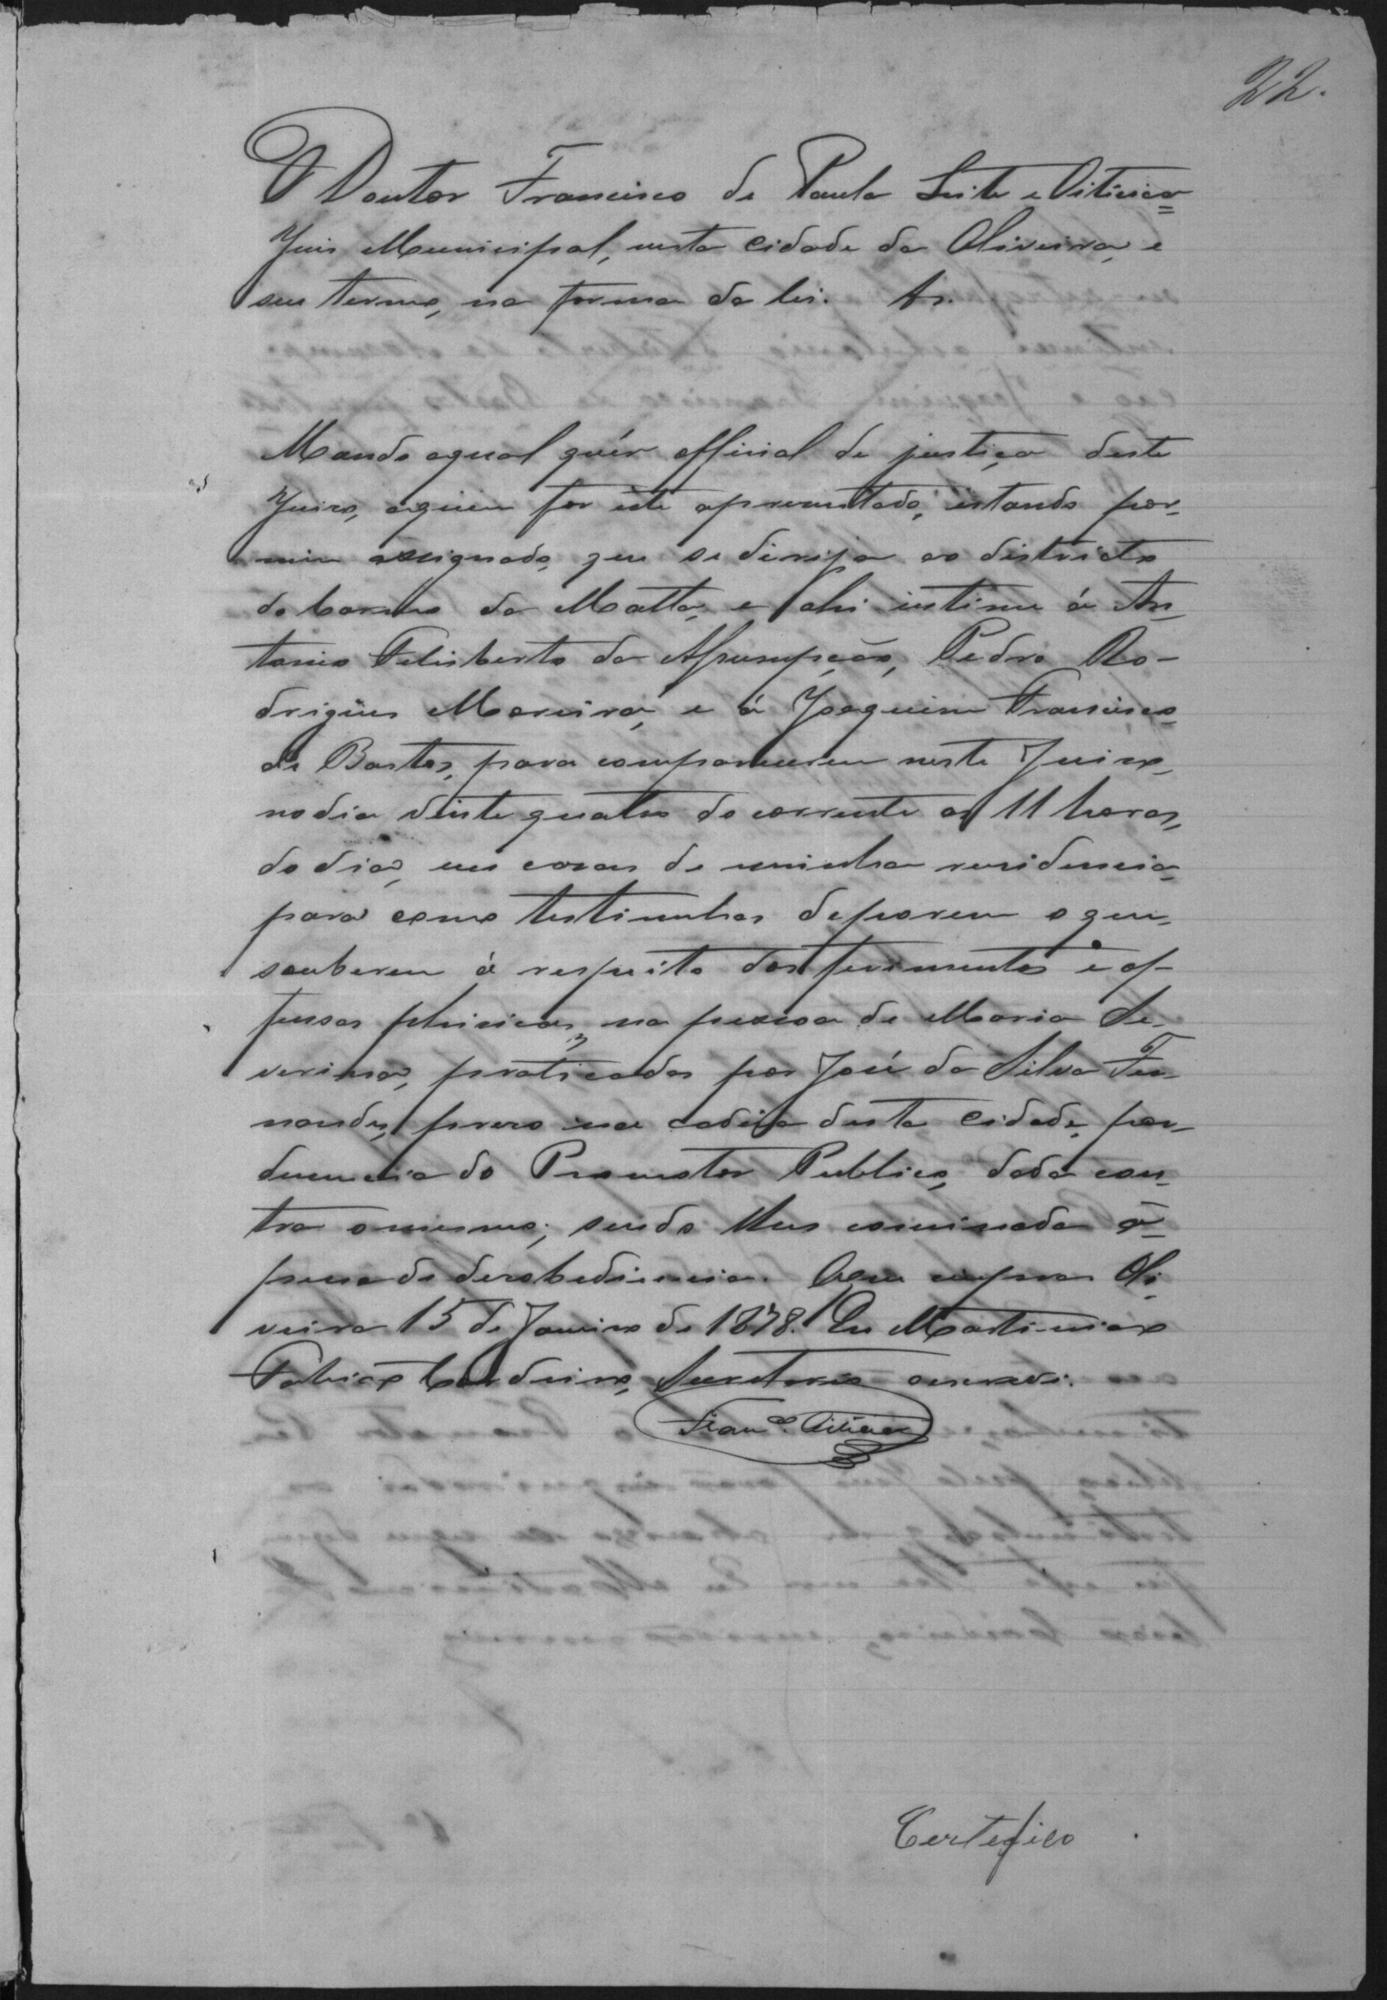 22.
O Doutor Francisco de Paula Leite e Oiticica
Juis Municipal, nesta cidade da Oliveira, e
seu termo, na forma da lei. &.
Mando aqual quér official de justiça deste
Juizo, aquem for este apresentado, estando por
mim assignado, que se dirija ao districto
do Carmo da Matta, e ahi intime á An-
tonio Felisberto da Assumpção, Pedro Ro-
drigues Moreira, e á Joaquim Francisco
de Bastos, para comparecerem neste Juizo,
no dia vinte quatro do corrente as 11 horas,
do dia, em casas de minha residencia,
para como testimunhas deporem o que,
souberem á respeito dos ferimentos e of-
fensas phisicas, na pessoa de Maria Se-
verina, praticadas por José da Silva Fer-
nandes, preso na cadeia desta cidade, por
denuncia do Promotor Publico, dada con-
tra o mesmo; sendo lhes cominada a
pena de desobediencia. Cumpra Oli-
veira 15 de Janeiro de 1878. Eu Martiniano
Cordeiro, escrevi.
Franco. Oiticica
Certefico